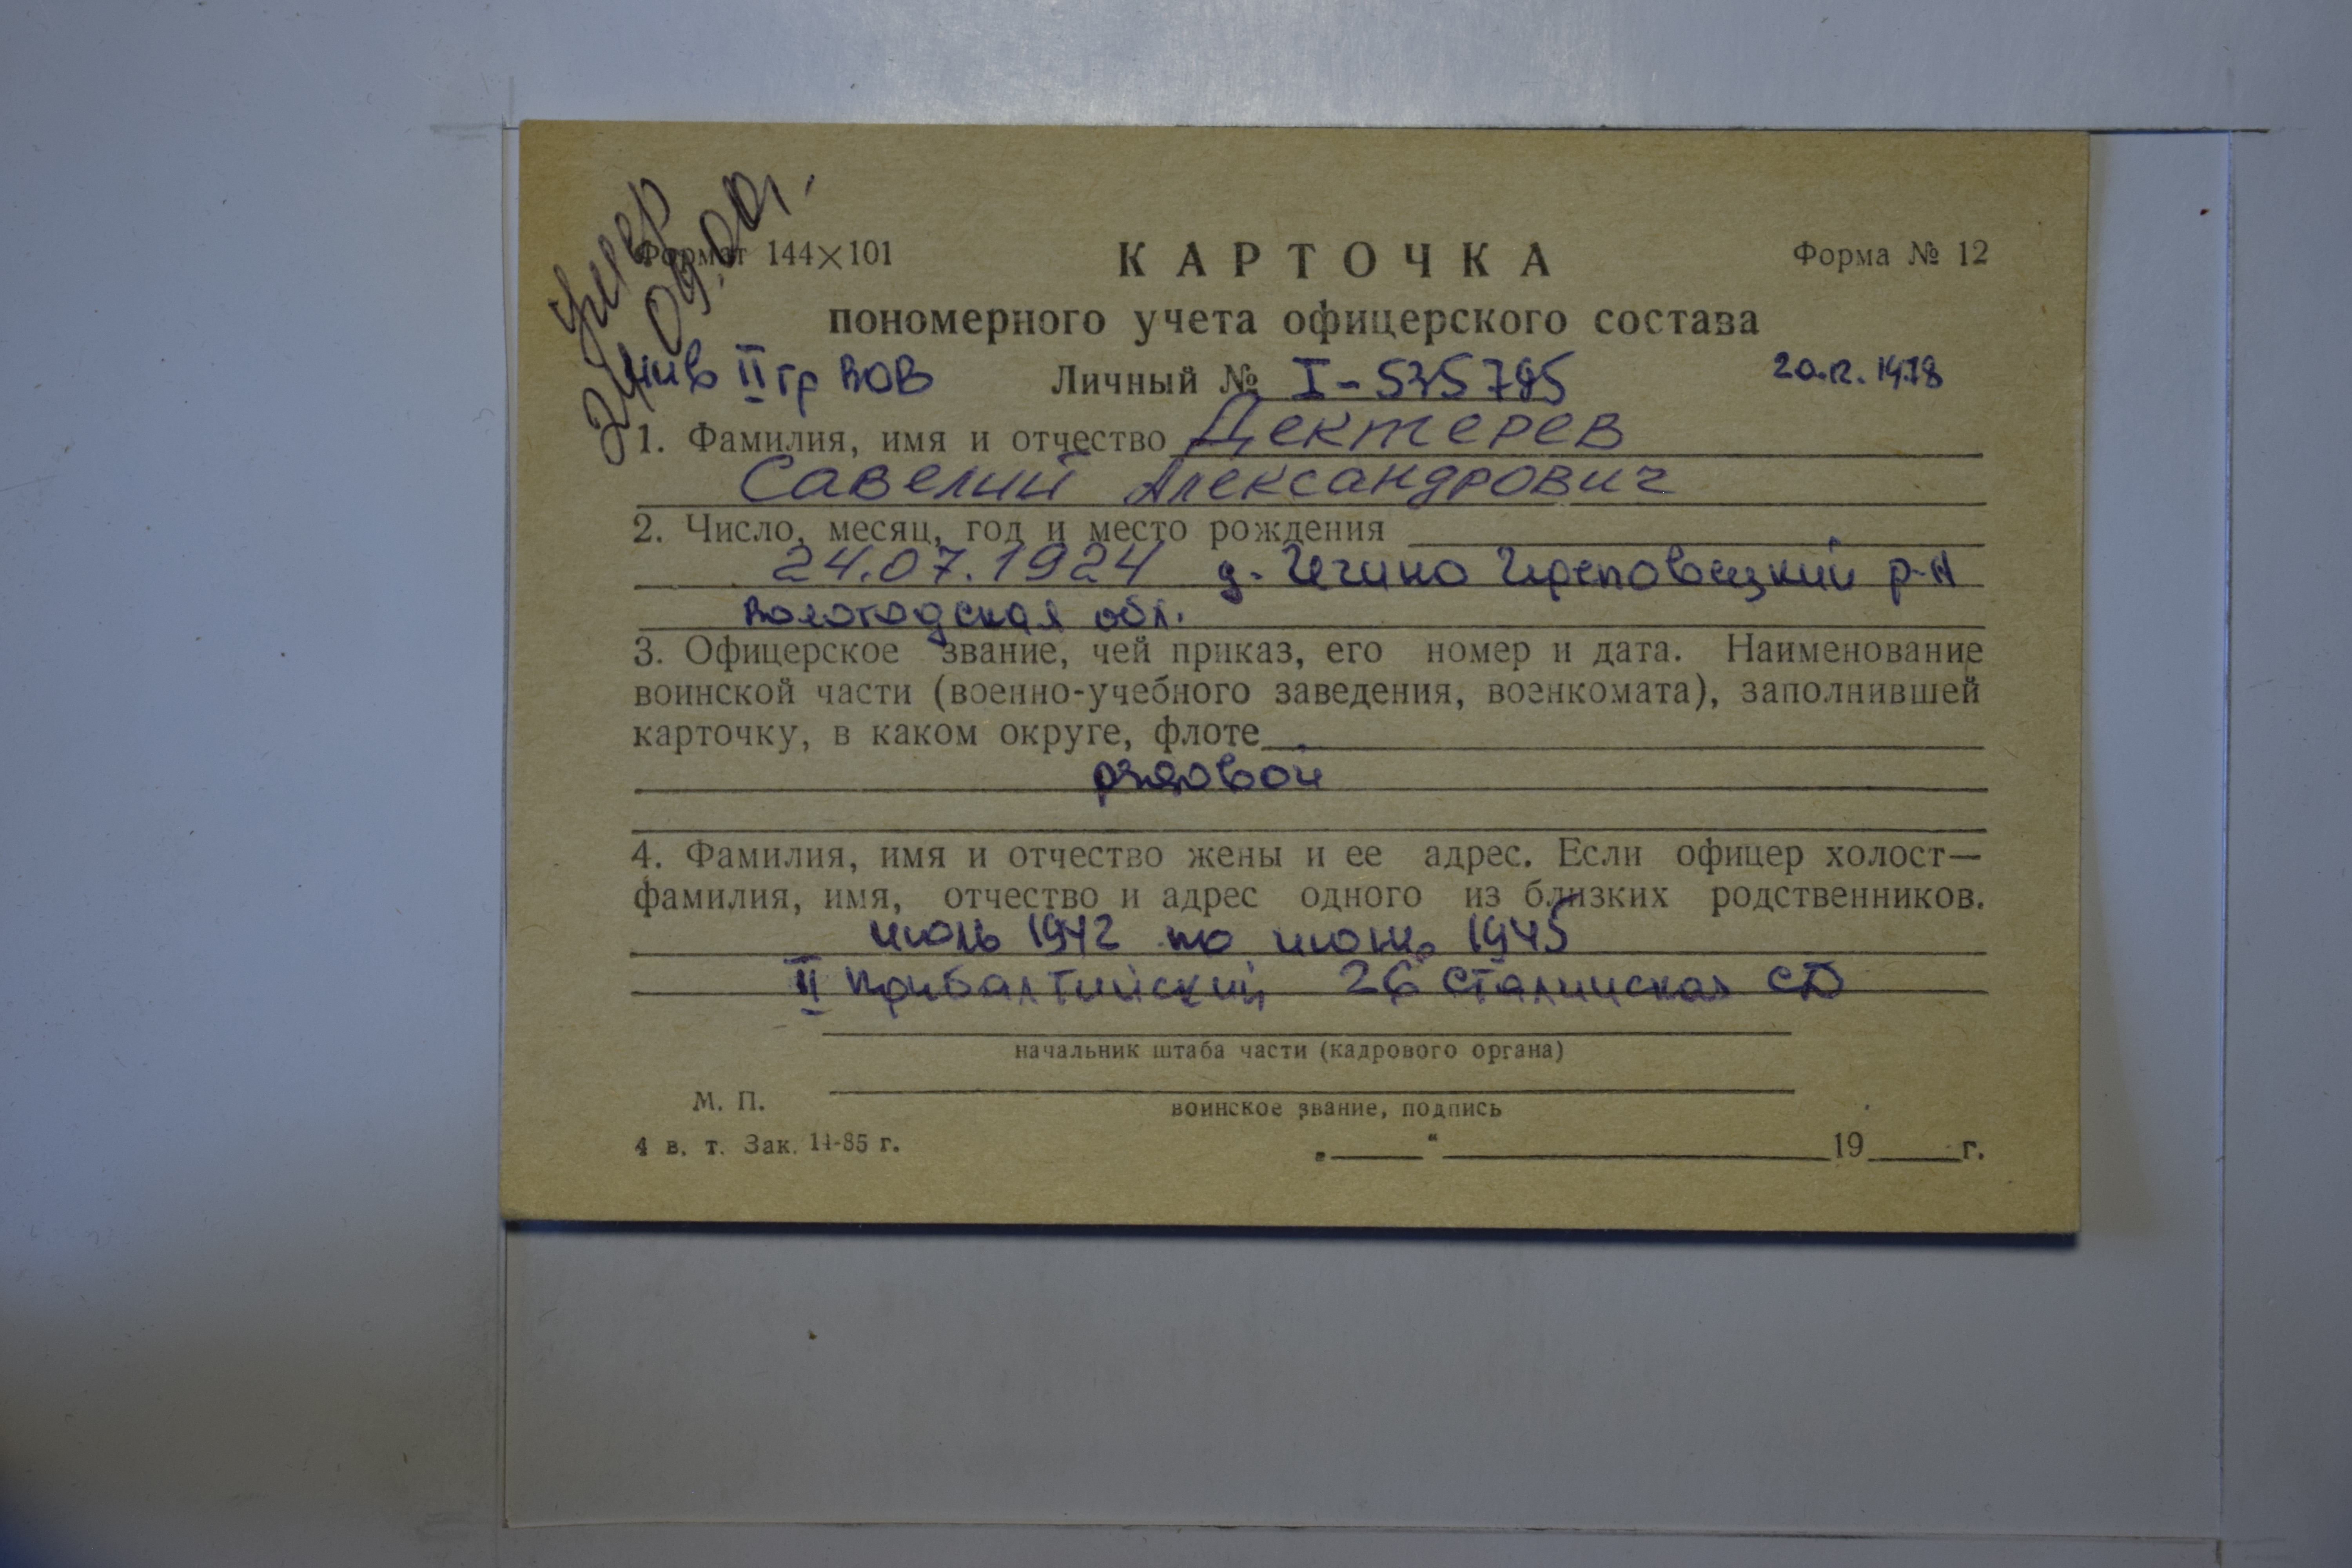 умер
24.09.00г.
Формат 144×101
КАРТОЧКА
Форма № 12
пономерного учета офицерского состава
инв II гр ВОВ
Личный № I-535785
20.12.1978
1. Фамилия, имя и отчество Дектерев
Савелий Александрович
2. Число, месяц, год и место рождения
24.07.1924 д. Чечино Череповецкий р-н
Вологодская обл.
3. Офицерское звание, чей приказ, его номер и дата. Наименование
воинской части (военно-учебного заведения, военкомата), заполнившей
карточку, в каком округе, флоте
рядовой
4. Фамилия, имя и отчество жены и ее адрес. Если офицер холост—
фамилия, имя, отчество и адрес одного из близких родственников.
июль 1942 по июнь 1945
II Прибалтийский 26 Сталинская СД
начальник штаба части (кадрового органа)
М. П.
воинское звание, подпись
4 в. т. Зак. 14-85 г.
„ “ 19 г.